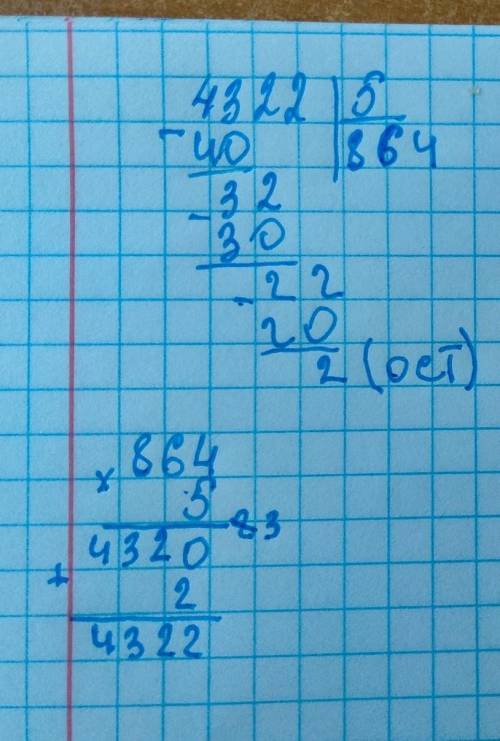 4322 | 5
- 40 | 864
- 32
30
- 22
20
2 (ост)
x 864
5
4320 83
+ 2
4322